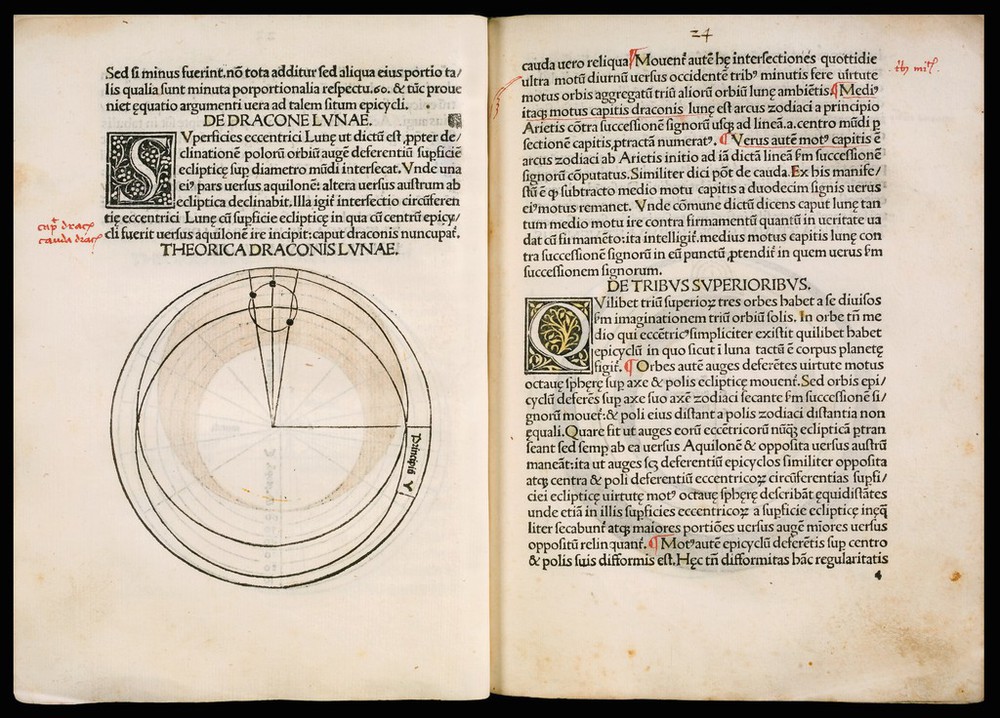 Sed si minus fuerint.nō tota additur sed aliqua eius portio ta/
lis qualia sunt minuta porportionalia respectu.60. & tūc proue
niet ęquatio argumenti uera ad talem situm epicycli.
DE DRACONE LVNAE.
SVperficies eccentrici Lunę ut dictū est ,ppter de/
clinationē polorū orbiū augē deferentiū supficiē
eclipticę sup diametro mūdi intersecat. Vnde una
eiꝰ pars uersus aquilonē: altera uersus austrum ab
ecliptica declinabit. Illa igit̄ intersectio circūferen
tię eccentrici Lunę cū supficie eclipticę in qua cū centrū epicy/
cli fuerit uersus aquilonē ire incipit: caput draconis nuncupat̄.
cauda
THEORICA DRACONIS LVNAE.
Principiū ♈
24
cauda uero reliqua Mouent̄ autē hę intersectiones quottidie
ultra motū diurnū uersus occidentē tribꝰ minutis fere uirtute
motus orbis aggregatū triū aliorū orbiū lunę ambiētis Mediꝰ
itaqꝫ motus capitis draconis lunę est arcus zodiaci a principio
Arietis cōtra successionē signorū usqꝫ ad lineā.a.centro mūdi p
sectionē capitis,ptractā numeratꝰ. Verus autē motꝰ capitis ē
arcus zodiaci ab Arietis initio ad iā dictā lineā s̄m successionē
signorū cōputatus. Similiter dici pōt de cauda. Ex his manife/
stū ē ꝙ subtracto medio motu capitis a duodecim signis uerus
eiꝰmotus remanet. Vnde cōmune dictū dicens caput lunę tan
tum medio motu ire contra firmamentū quantū in ueritate ua
dat cū firmamēto:ita intelligit̄.medius motus capitis lunę con
tra successionē signorū in eū punctū ,ptendit̄ in quem uerus s̄m
successionem signorum.
DE TRIBVS SVPERIORIBVS.
QVilibet triū superioꝝ tres orbes habet a se diuisos
s̄m imaginationem triū orbiū solis. In orbe tn̄ me
dio qui eccētricꝰsimpliciter existit quilibet habet
epicyclū in quo sicut i luna tactū ē corpus planetę
figit̄. Orbes autē auges deferētes uirtute motus
octauę sphęrę sup axe & polis eclipticę mouent̄. Sed orbis epi/
cyclū deferēs sup axe suo axē zodiaci secante s̄m successionē si/
gnorū mouet̄:& poli eius distant a polis zodiaci distantia non
ęquali. Quare fit ut auges eorū eccētricorū nūqꝫ eclipticā ptran
seant sed semp ab ea uersus Aquilonē & opposita uersus austrū
maneāt:ita ut auges scꝫ deferentiū epicyclos similiter opposita
atqꝫ centra & poli deferentiū eccentricoꝝ circūferentias supfi/
ciei eclipticę uirtute motꝰ octauę sphęrę describāt ęquidistātes
unde etiā in illis supficies eccentricoꝝ a supficie eclipticę inęq̄
liter secabunt̄ atqꝫ maiores portiōes uersus augē miores uersus
oppositū relinquant̄. Motꝰautē epicyclū deferētis sup centro
& polis suis difformis est. Hęc tn̄ difformitas hāc regularitatis